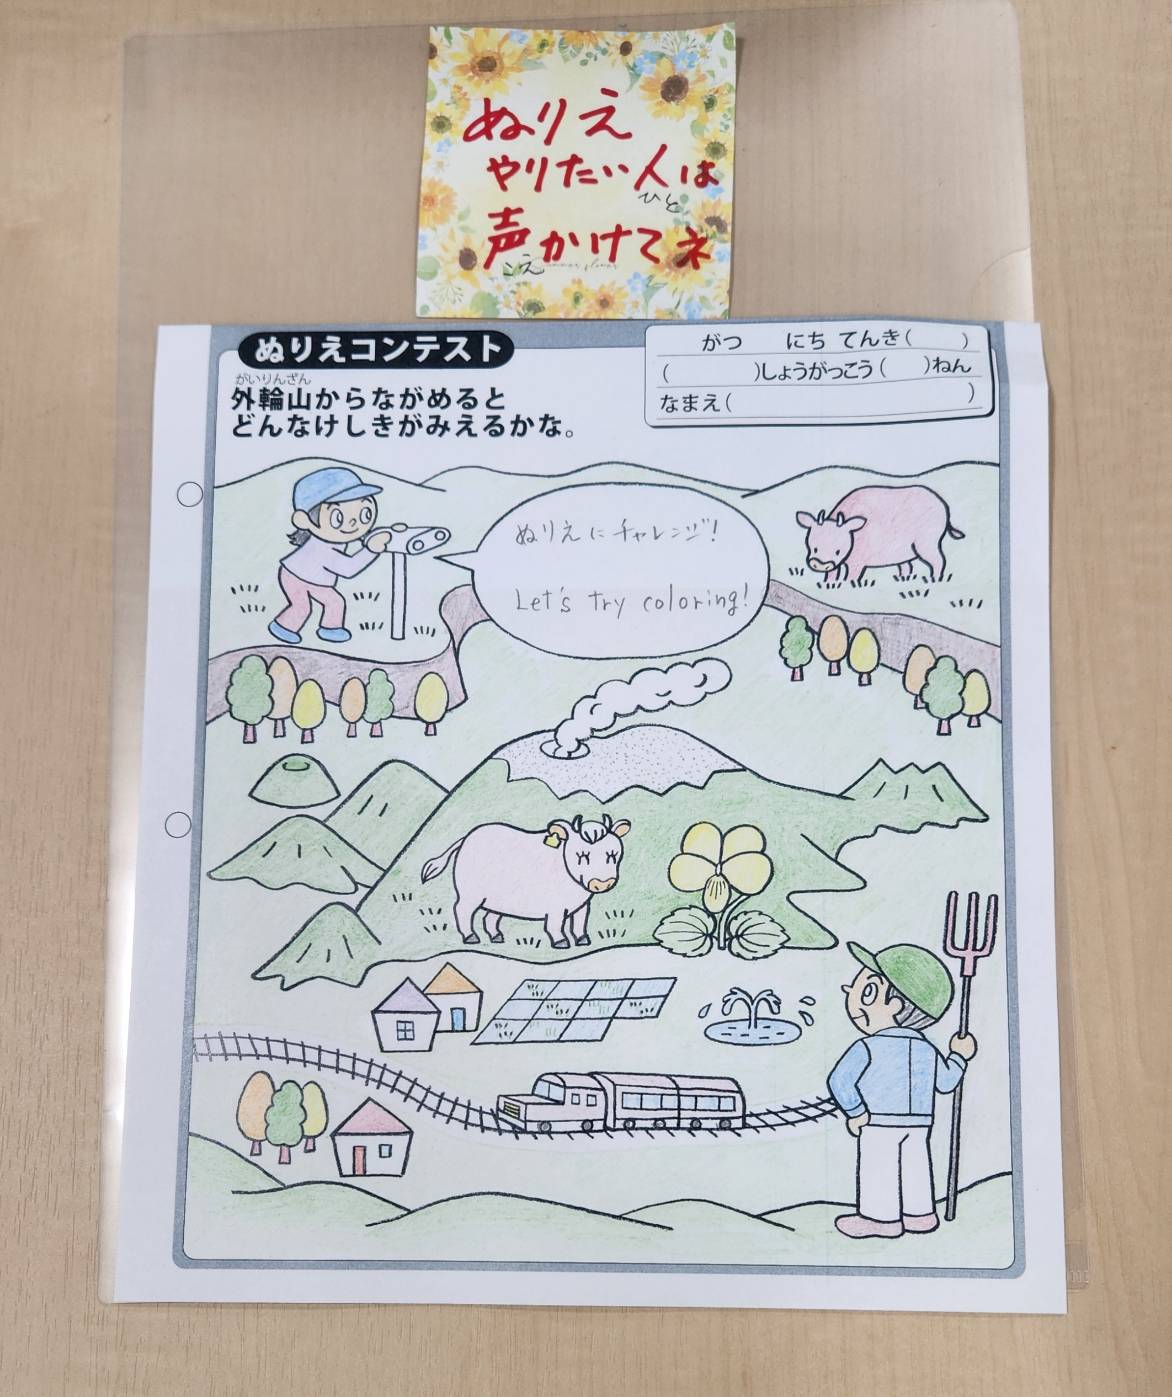 ぬりえ
やりたい人は
ひと
声かけてネ
こえ
ぬりえコンテスト
がつ にち てんき( )
( )しょうがっこう( )ねん
なまえ( )
がいりんざん
外輪山からながめると
どんなけしきがみえるかな。
ぬりえにチャレンジ!
Let's try coloring!